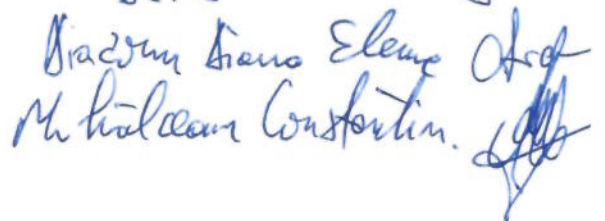 Diaconu Diana Elena
Mihălceanu Constantin.